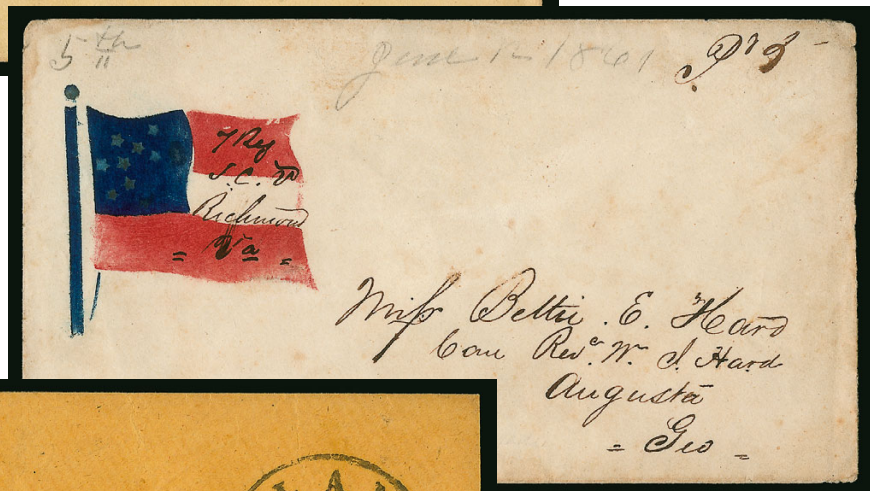 5th
"
June 12 1861
Pd 3
7 Reg
S. C. V
Richmond
= Va =
Miss Bettie. E. Hard
Care Revd. Wm J. Hard
Augusta
= Geo =
LAN